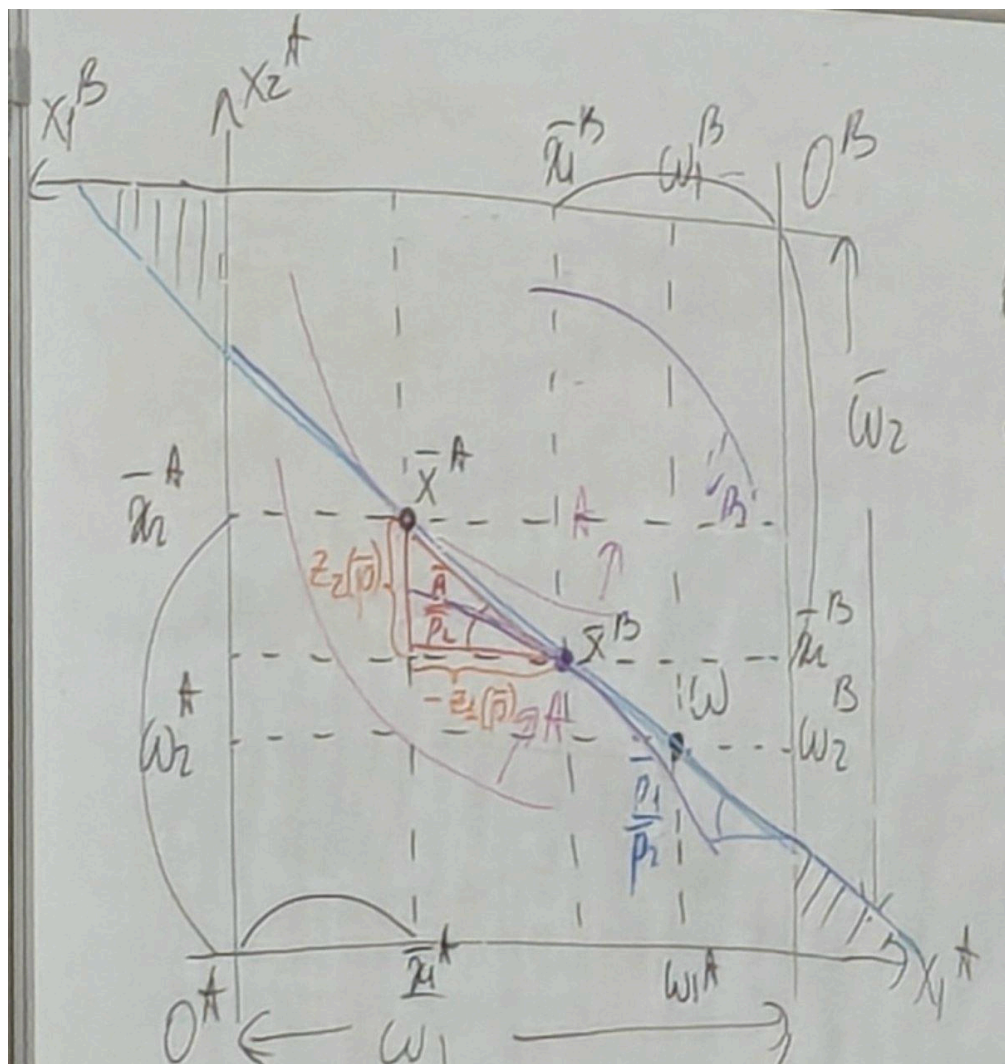 x₁ᴮ
x₂ᴬ
x̄₁ᴮ
ω₁ᴮ
Oᴮ
ω̄₂
x̄₂ᴬ
x̄ᴬ
A
B
z₂(p̄)
p̄₂
x̄ᴮ
-z₁(p̄)
A
ω
ω₂ᴬ
ω₂ᴮ
p̄₁
p̄₂
x̄₁ᴬ
ω₁ᴬ
x₁ᴬ
Oᴬ
ω₁